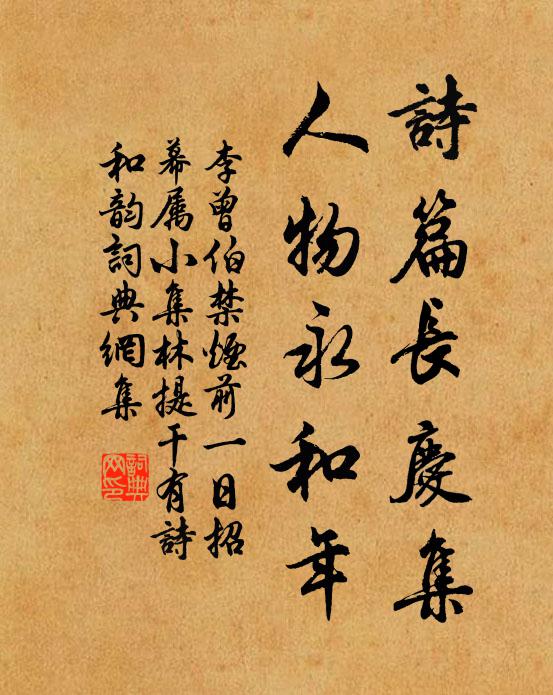 詩篇長慶集
人物永和年
李曾伯禁煙前一日招
幕属小集林提干有詩
和韵詞典網集
詞典
网印